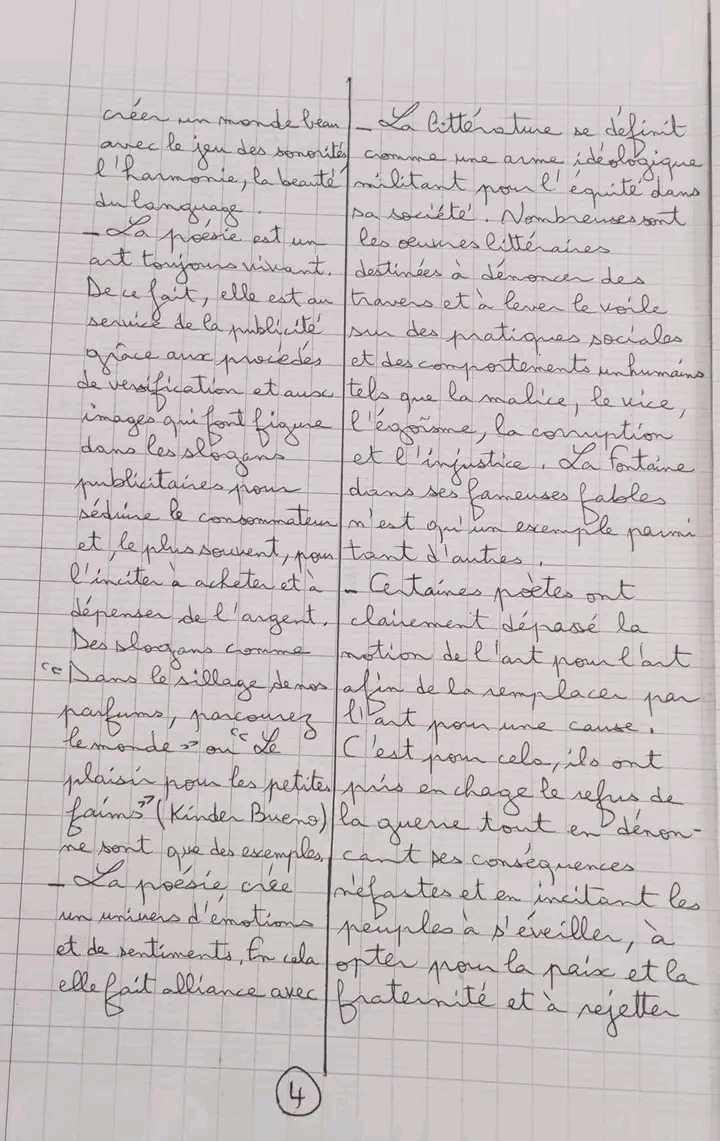 créer un monde beau
avec le jeu des sonorités
l'harmonie, la beauté
du language.
- La poésie est un
art toujours vivant.
De ce fait, elle est au
service de la publicité
grâce aux procédés
de versification et aux
images qui font figure
dans les slogans
publicitaires pour
séduire le consommateur
et, le plus souvent, pour
l'inciter à acheter et à
dépenser de l'argent.
Des slogans comme
"Dans le sillage de nos
parfums, parcourez
le monde" ou "Le
plaisir pour les petites
faims" (Kinder Bueno)
ne sont que des exemples.
- La poésie crée
un univers d'émotions
et de sentiments, En cela
elle fait alliance avec
- La littérature se définit
comme une arme idéologique
militant pour l'équité dans
sa société. Nombreuses sont
les œuvres littéraires
destinées à dénoncer des
travers et à lever le voile
sur des pratiques sociales
et des comportements unhumains
tels que la malice, le vice,
l'égoïsme, la corruption
et l'injustice. La Fontaine
dans ses fameuses fables
n'est qu'un exemple parmi
tant d'autres.
- Certaines poètes ont
clairement dépassé la
notion de l'art pour l'art
afin de la remplacer par
l'art pour une cause.
C'est pour cela, ils ont
pris en chage le refus de
la guerre tout en dénon-
cant ses conséquences
néfastes et en incitant les
peuples à s'éveiller, à
opter pour la paix et la
fraternité et à rejetter
4